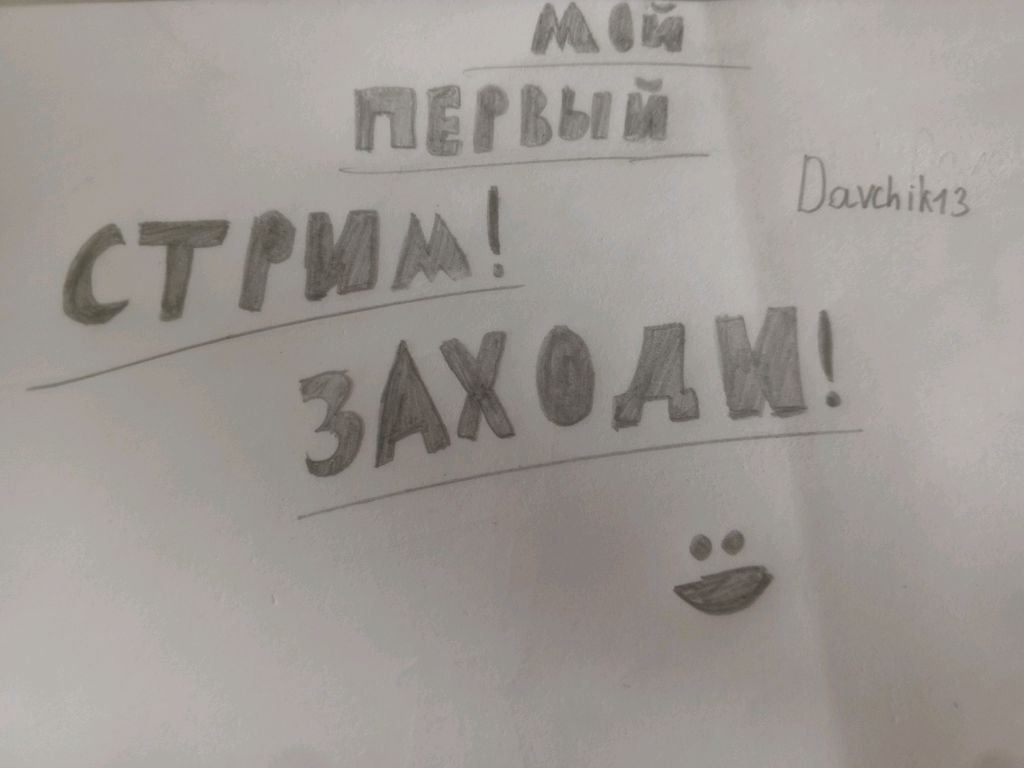 МОЙ
ПЕРВЫЙ
Davchik13
СТРИМ!
ЗАХОДИ!